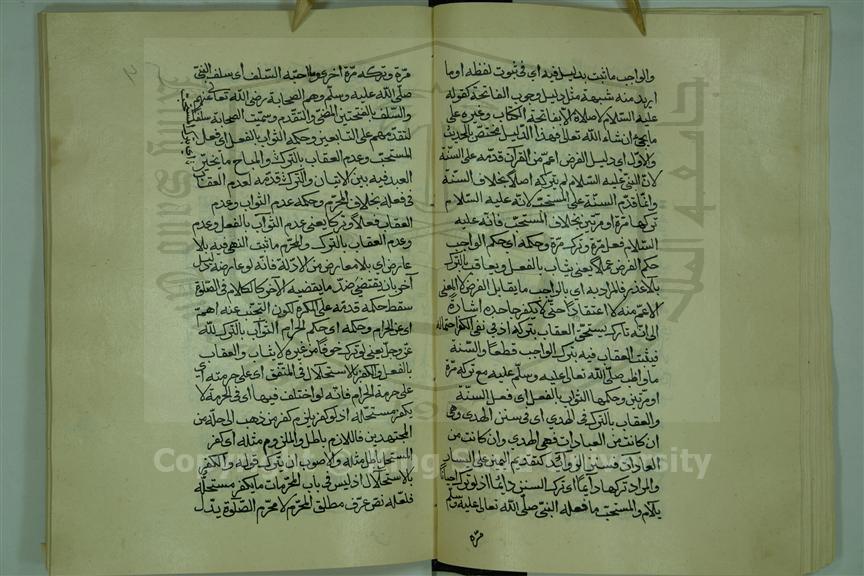 والواجب ما ثبت بدليل فيه اى فى ثبوت لفظه او ما
اريد منه شبهة مثل دليل وجوب الفاتحة كقوله
عليه السلام لا صلاة الا بفاتحة الكتاب وغيره على
ما يجئ ان شاء الله تعالى فهذا الدليل مختص بالحديث
والاول اى دليل الفرض اعم من القرآن قدمه على السنة
لان النبى عليه السلام لم يتركه اصلا بخلاف السنة
وانما قدم السنة على المستحب لانه عليه السلام
تركها مرة او مرتين بخلاف المستحب فانه عليه
السلام فعل مرة وترك مرة وحكمه اى حكم الواجب
حكم الفرض عملا يعنى يثاب بالفعل ويعاقب بالترك
بلا عذر فالمراد به اى بالواجب ما يقابل الفرض لا المعنى
الاعم منه لا اعتقادا حتى لا يكفر جاحده اشارة
الى انه تاركه يستحق العقاب بتركه اذ فى نفى الكفر احتماله
فيثبت العقاب فيه بترك الواجب قطعا والسنة
ما واظب صلى الله تعالى عليه وسلم عليه مع تركه مرة
او مرتين وحكمها الثواب بالفعل اى فعل السنة
والعقاب بالترك فى الهدى اى فى سنن الهدى وهى
ان كانت من العبادات فهى الهدى وان كانت من
العادات فسنن الزوائد كتقديم اليمنى على اليسار
والمراد تركها دائما اى ترك السنن دائما اذ لو ترك احيانا
يلام والمستحب ما فعله النبى صلى الله تعالى عليه وسلم
مرة
مرة وتركه مرة اخرى وما احبه السلف اى سلف النبى
صلى الله عليه وسلم وهم الصحابة رضى الله تعالى عنهم
والسلف بالفتحتين المضى والتقدم وسميت الصحابة سلفا
لتقدمهم على التابعين وحكمه الثواب بالفعل اى فعل
المستحب وعدم العقاب بالترك والمباح ما تخير
العبد فيه بين الاتيان والترك قدمه لعدم العقاب
فى فعله بخلاف المحرم وحكمه عدم الثواب وعدم
العقاب فعلا وتركا يعنى عدم الثواب بالفعل وعدم
وعدم العقاب بالترك والمحرم ما ثبت النهى فيه بلا
عارض اى بلا معارض من الادلة فانه لو عارضه دليل
آخر بان يقتضى ضد ما يقضيه الآخر كالكلام فى الصلوة
سقط حكمه قدمه على المكره لكون التجنب عنه اهم
اى عن الحرام وحكمه اى حكم الحرام الثواب بالترك لله
عز وجل يعنى لو ترك خوفا من غيره لا يثاب والعقاب
بالفعل والكفر بالاستحلال فى المتفق اى على حرمته اى
على حرمة الحرام فانه لو اختلف فيها اى فى الحرمة لا
يكفر مستحله اذ لو كفر يلزم كفر من ذهب الى حله من
المجتهدين فاللازم باطل والملزوم مثله اى كفر
المستحل باطل مثله والاصوب ان يترك قوله والكفر
بالاستحلال اذ ليس فى باب المحرمات ما يكفر مستحله
فلعله نص عرف مطلق المحرم لا محرم الصلوة
Copyright © King Saud University